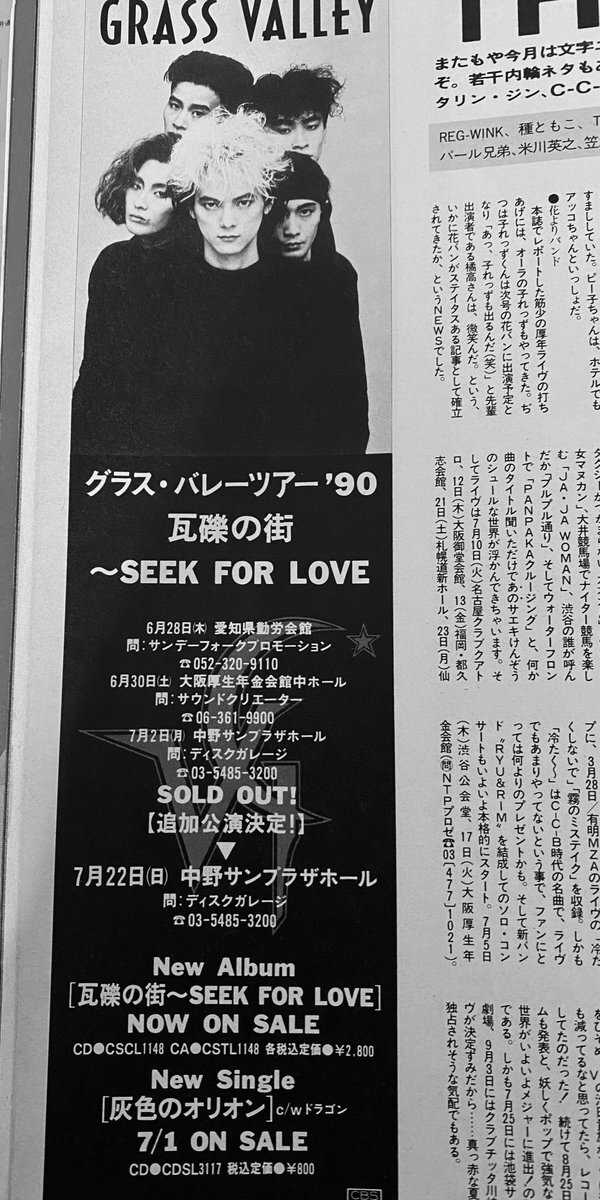 GRASS VALLEY
グラス・バレーツアー'90
瓦礫の街
〜SEEK FOR LOVE
6月28日(木) 愛知県勤労会館
問:サンデーフォークプロモーション
☎052-320-9110
6月30日(土) 大阪厚生年金会館中ホール
問:サウンドクリエーター
☎06-361-9900
7月2日(月) 中野サンプラザホール
問:ディスクガレージ
☎03-5485-3200
SOLD OUT!
【追加公演決定!】
▼
7月22日(日) 中野サンプラザホール
問:ディスクガレージ
☎03-5485-3200
New Album
[瓦礫の街〜SEEK FOR LOVE]
NOW ON SALE
CD●CSCL1148 CA●CSTL1148 各税込定価●¥2,800
New Single
[灰色のオリオン]c/wドラゴン
7/1 ON SALE
CD●CDSL3117 税込定価●¥800
CBS
TH
またもや今月は文字
ぞ。若干内輪ネタも
タリン・ジン、C-C-
REG-WINK、種ともこ、T
パール兄弟、米川英之、笠
すましていた。ピー子ちゃんは、ホテルでも
アッコちゃんといっしょだ。
●花よりバンド
本誌でレポートした筋少の厚年ライヴの打ち
あげには、オーラの子れっずもやってきた。ぢ
つは子れっずくんは次号の花バンに出演予定と
なり「あっ、子れっずも出るんだ(笑)」と先輩
出演者である橘高さんは、微笑んだ。という、
いかに花バンがステイタスある記事として確立
されてきたか、というNEWSでした。
女マヌカン」、大井競馬場でナイター競馬を楽し
む「JA・JA WOMAN」、渋谷の誰が呼ん
だか「プルプル通り」、そしてウォーターフロン
トで「PANPAKAクルージング」と、何か
曲のタイトル聞いただけであのサエキけんぞう
のシュールな世界が浮かんできちゃいます。そ
してライヴは7月10日(火)名古屋クラブクアト
ロ、12日(木)大阪御堂会館、13(金)福岡・都久
志会館、21日(土)札幌道新ホール、23日(月)仙
プに、3月28日/有明MZAのライヴの「冷た
くしないで」「霧のミステイク」を収録。しかも
「冷たく〜」はC-C-B時代の名曲で、ライヴ
でもあまりやってないという事で、ファンにと
っては何よりのプレゼントかも。そして新バン
ド“RYU&RIM”を結成してのソロ・コン
サートもいよいよ本格的にスタート。7月5日
(木)渋谷公会堂、17日(火)大阪厚生年
金会館(問NTPプロゼ☎03(477)1021)。
も減ってるなと思ってたら、レコー
してたのだった! 続けて8月25日
ムも発表と、妖しくポップで強気な
世界がいよいよメジャーに進出!の
である。しかも7月25日には池袋サ
劇場、9月3日にはクラブチッタ川
ヴが決定ずみだから……真っ赤な夏
独占されそうな気配でもある。